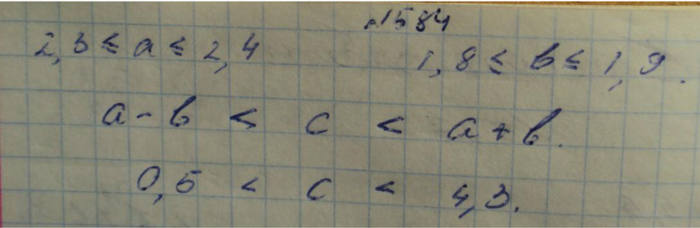 №1584
2,3 ≤ a ≤ 2,4 1,8 ≤ b ≤ 1,9.
a - b < c < a + b.
0,5 < c < 4,3.